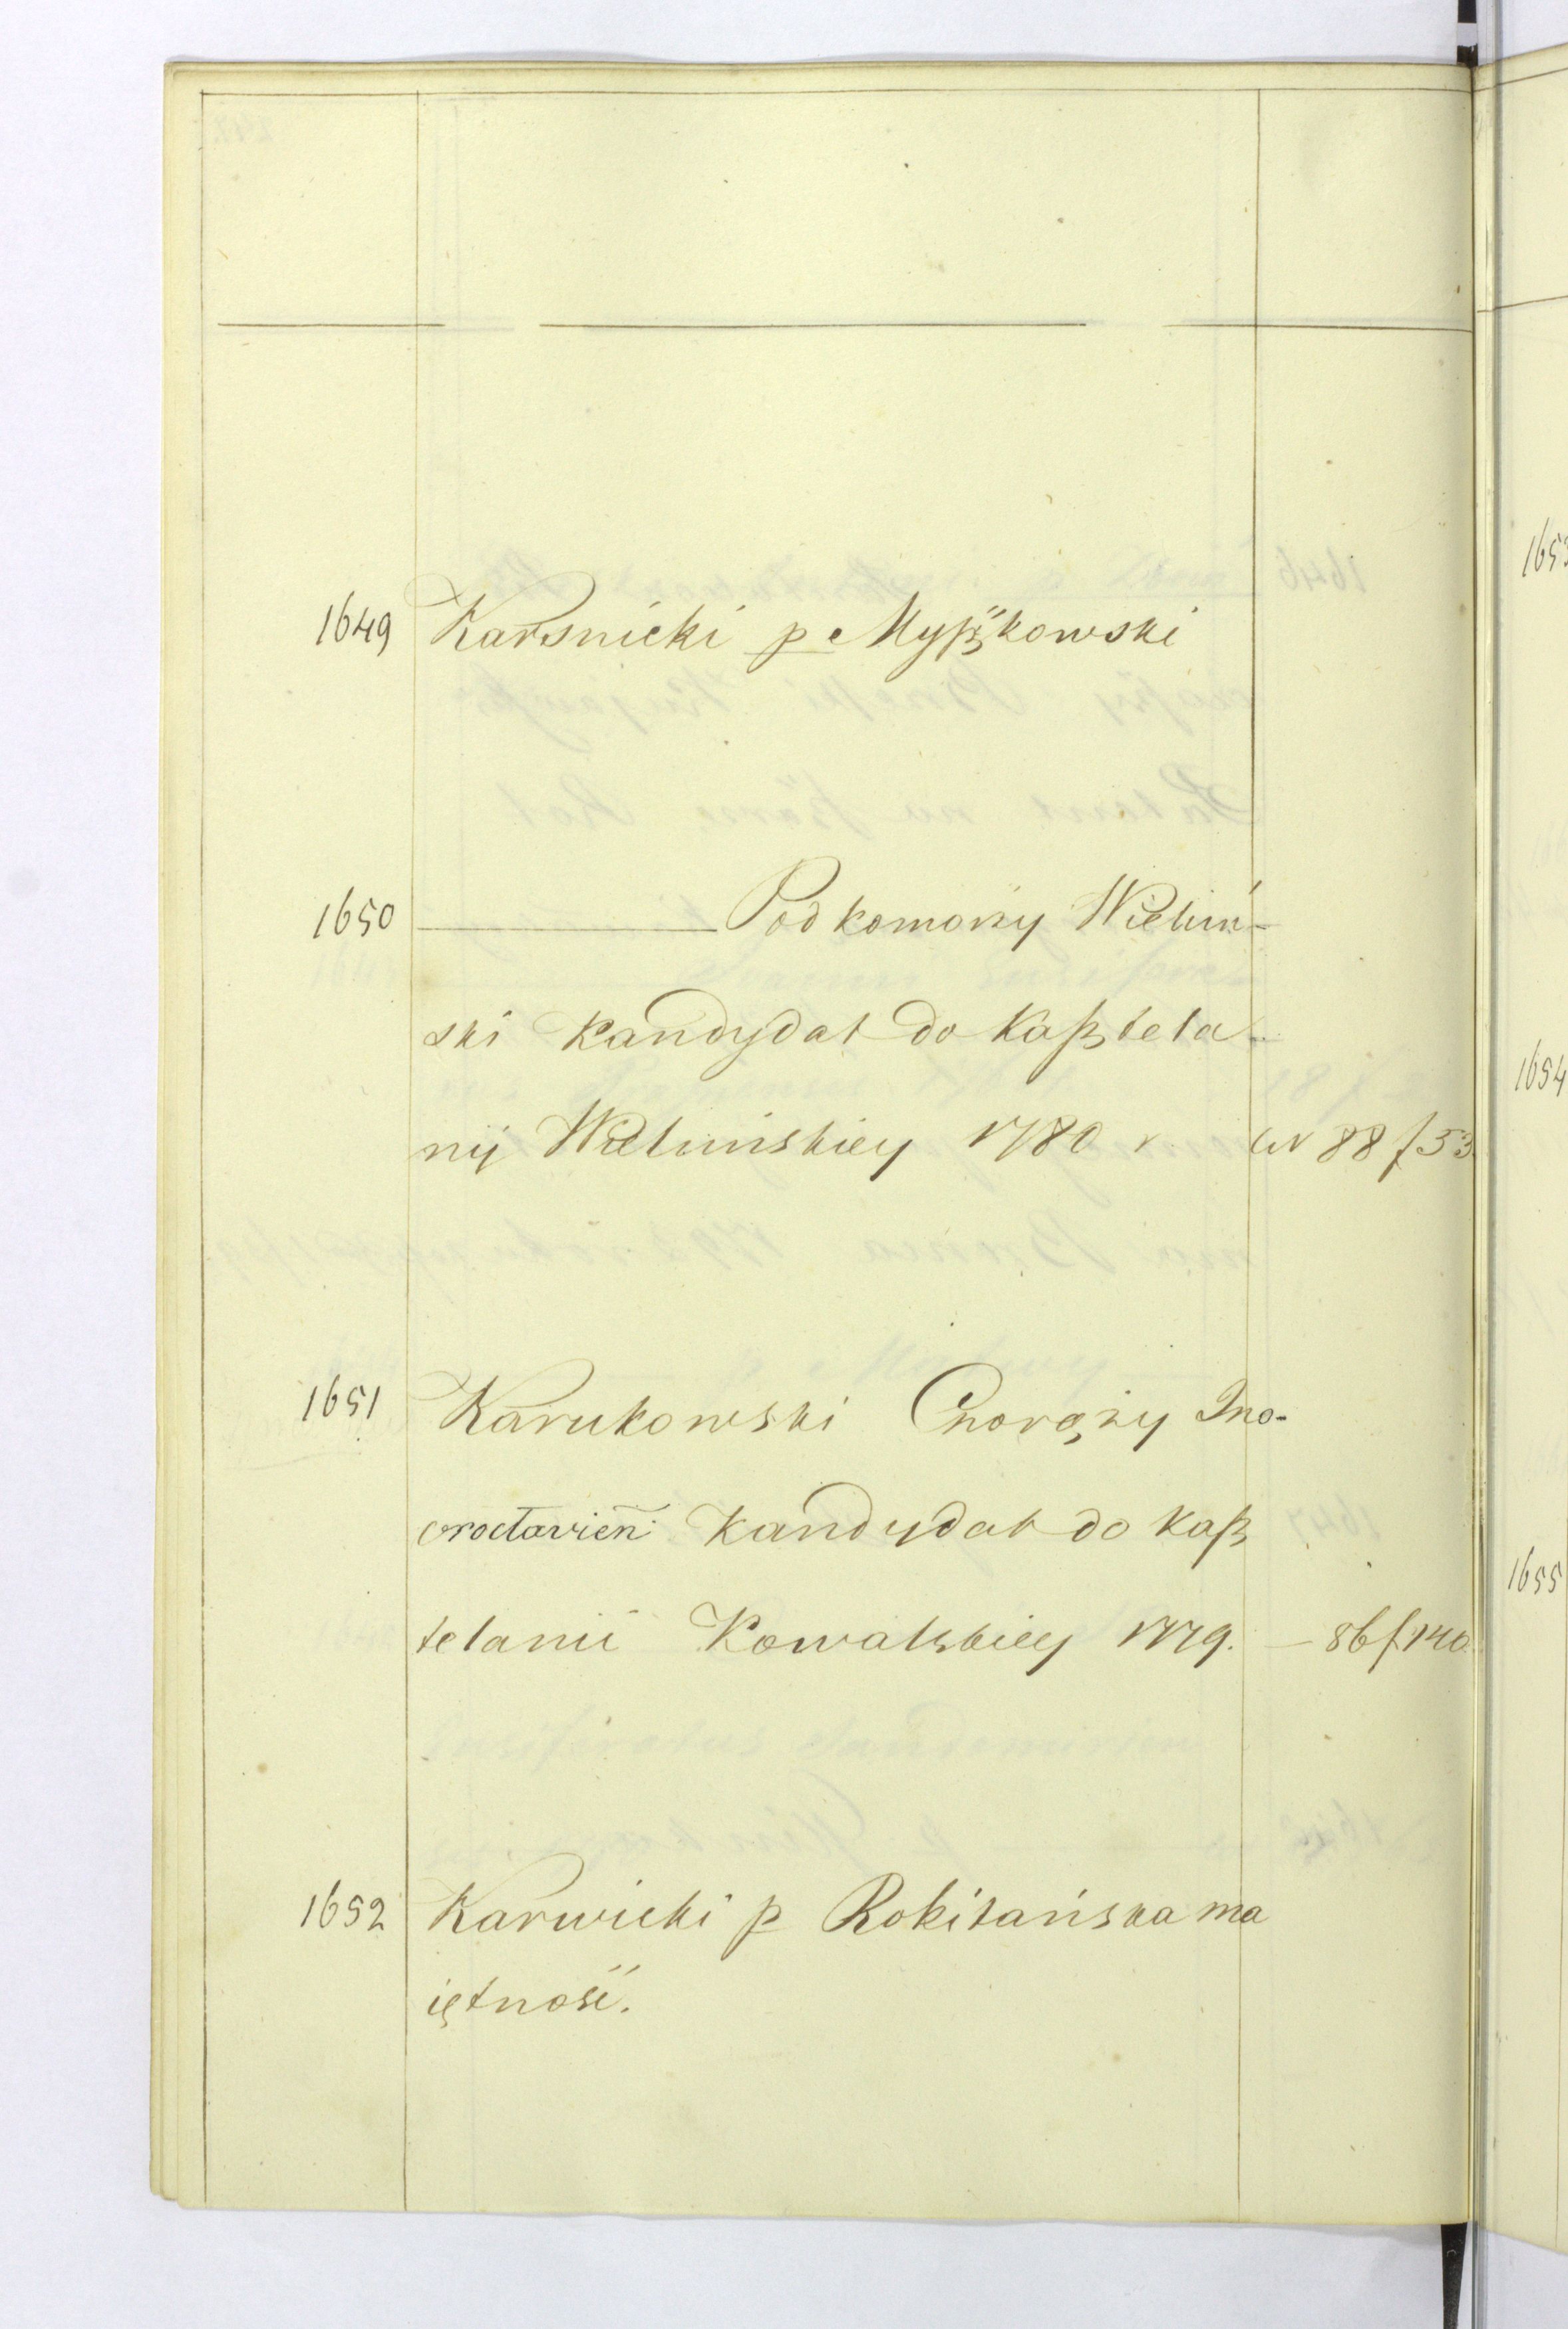 1649 Karsnicki p Myszkowski
1650 Podkomorzy Wieluń-
ski Kandydat do Kaszteла-
nij Wieluńskiey 1780 r. W 88 f 53.
1651 Karukowski Chorąży Ino-
wrocławień: Kandydat do Kasz
telanii Kowalskiey 1779. — 86 f 140.
1652 Karwicki p Rokitańska ma
iętność.
1653
1654
1655